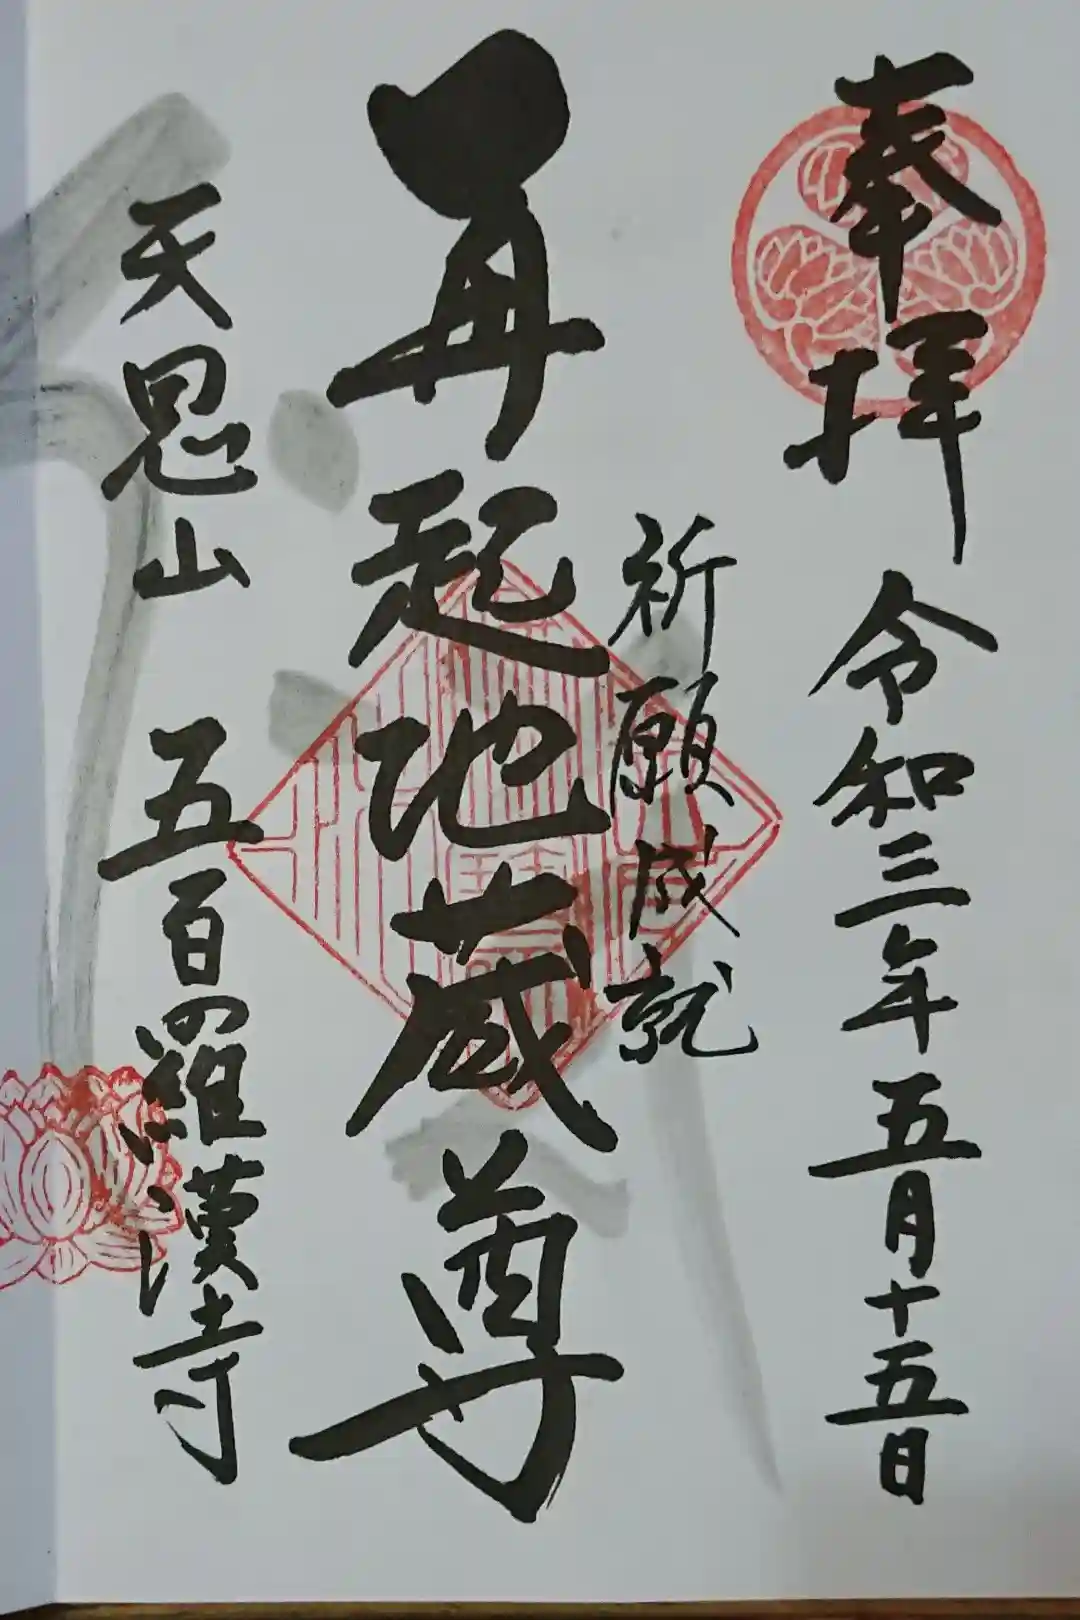 奉拝 令和三年五月十五日
祈願成就
再起地蔵尊
天恩山 五百羅漢寺